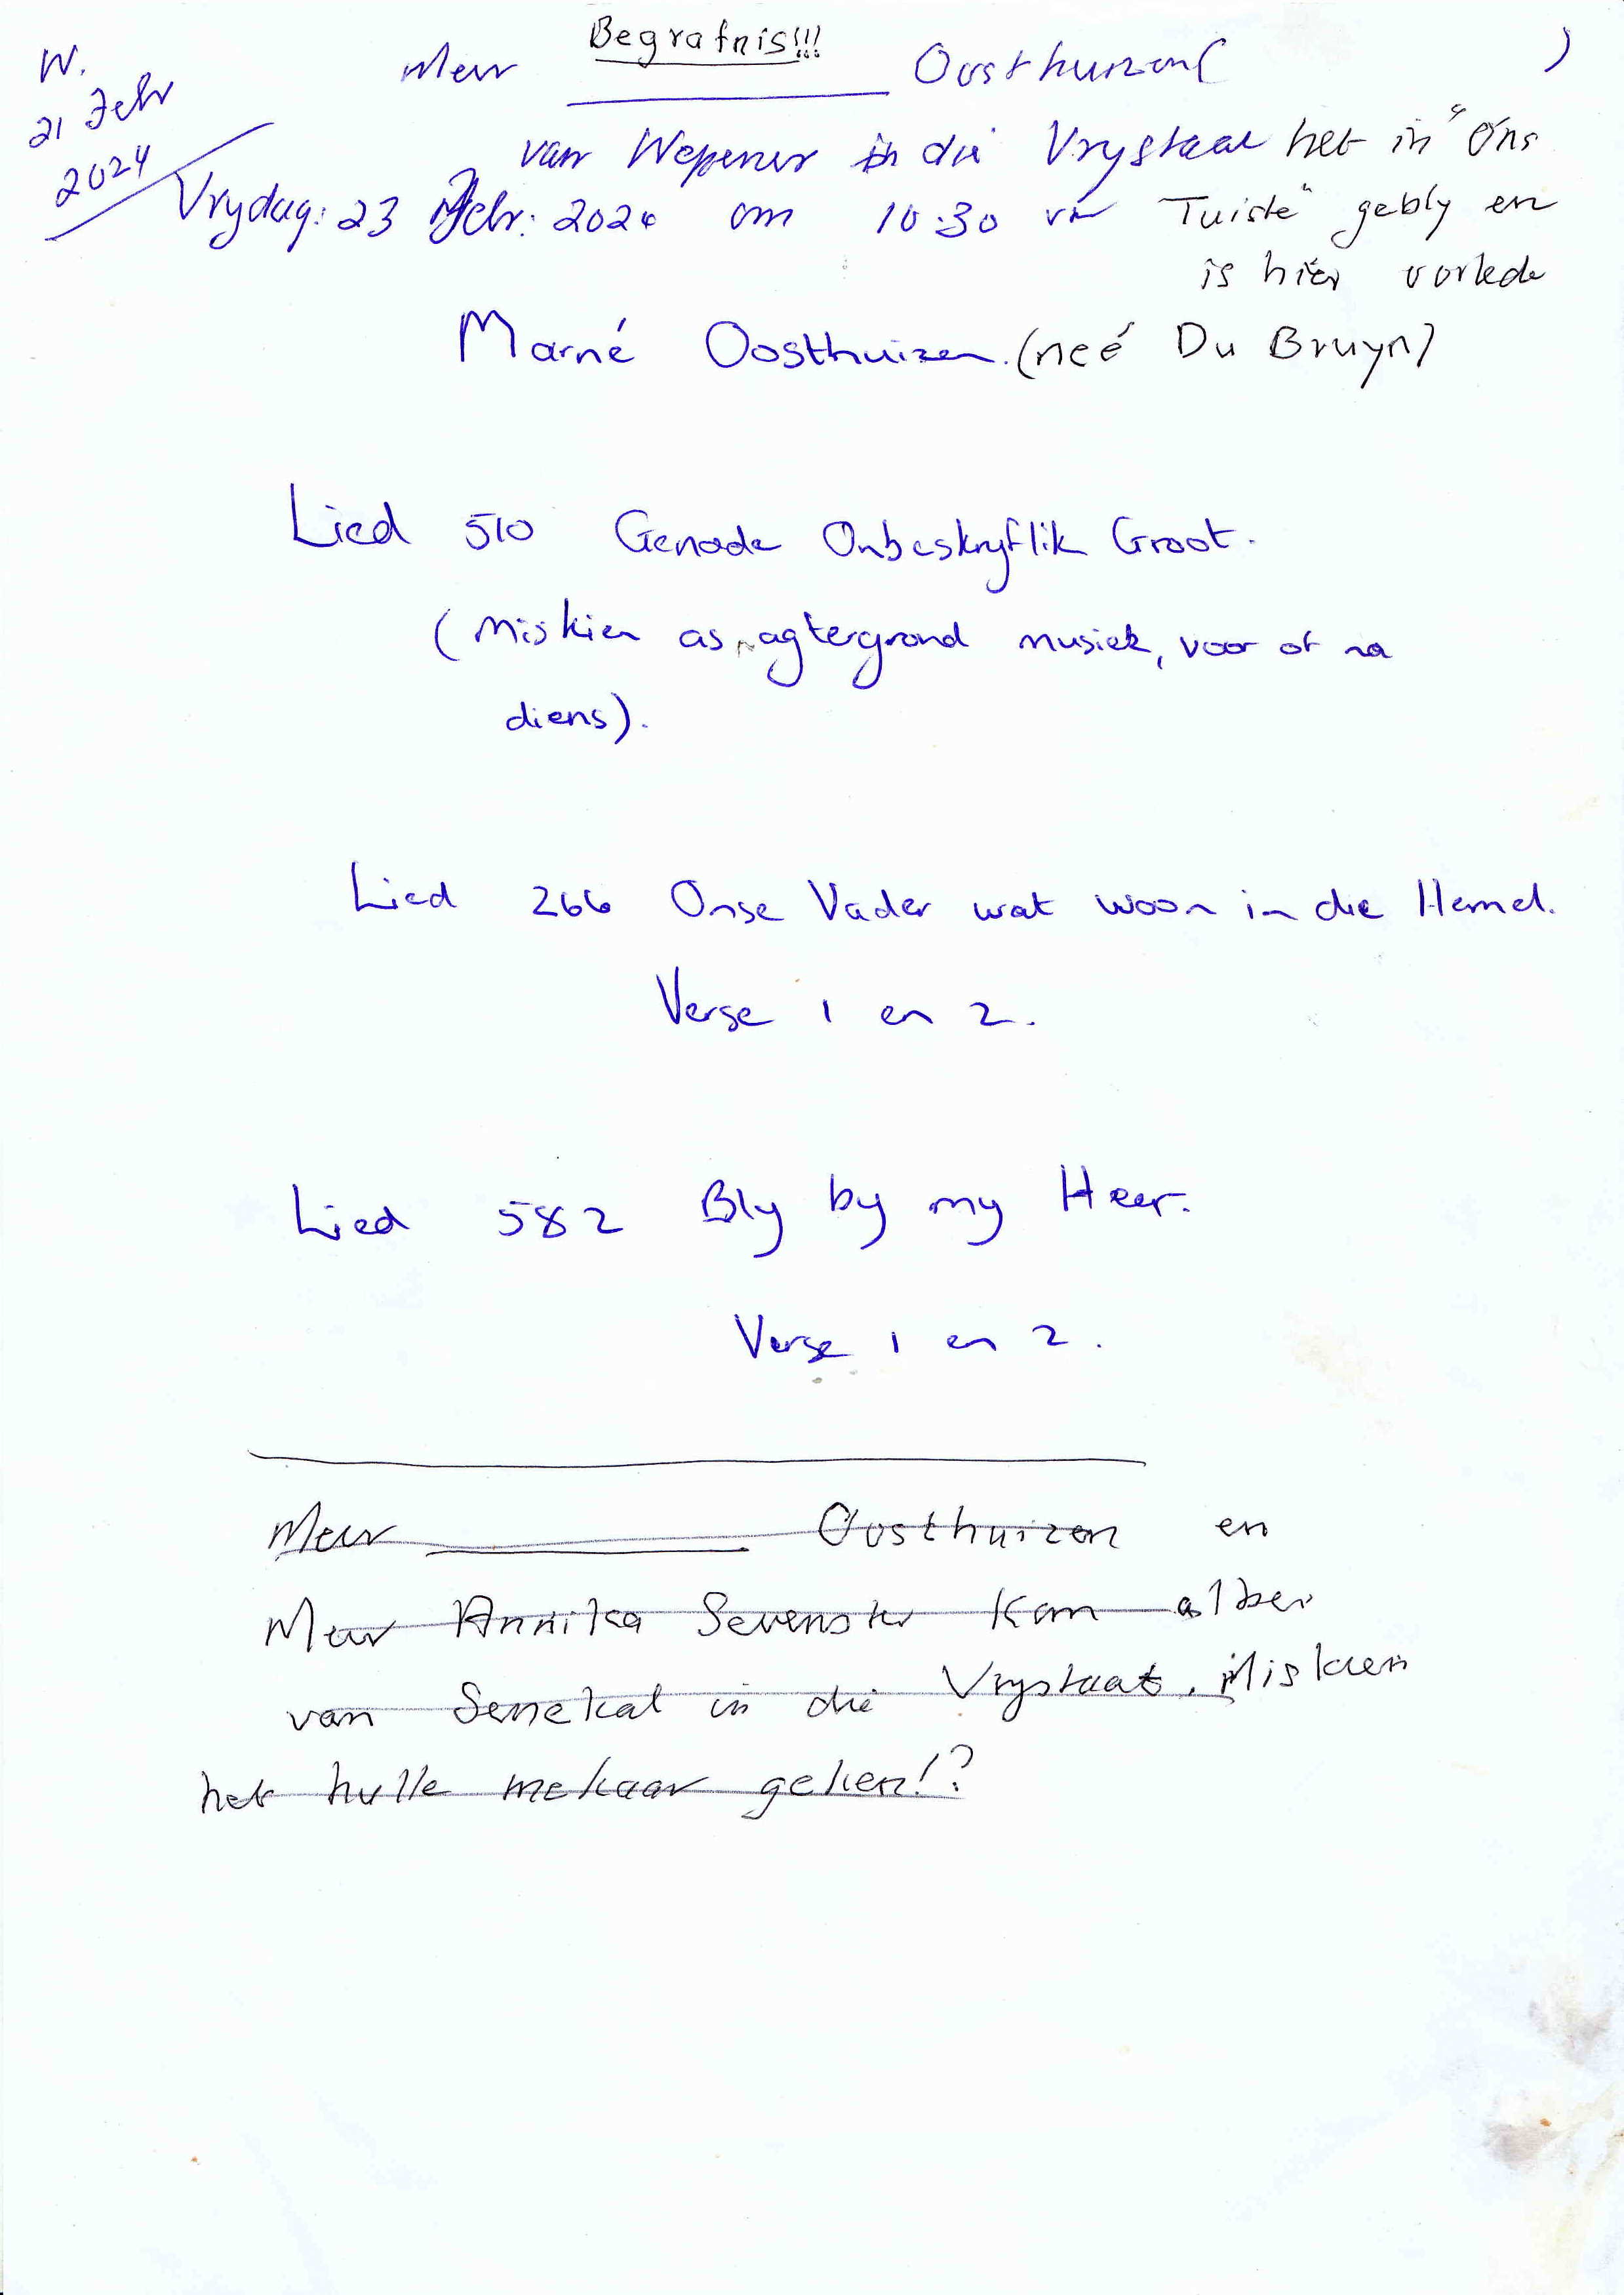 Begrafnis!!!
W.
21 Febr
2024
Mevr ________ Oosthuizen (                    )
van Wepener in die Vrystaat het in "Ons
Vrydag: 23 Febr: 2024 om 10:30 vm Tuiste" gebly en
is hier oorlede
Marné Oosthuizen. (neé Du Bruyn)
Lied 510 Genade Onbeskryflik Groot.
(Miskien as agtergrond musiek, voor of na
diens).
Lied 266 Onse Vader wat woon in die Hemel.
Verse 1 en 2.
Lied 582 Bly by my Heer.
Verse 1 en 2.
Mevr ________ Oosthuizen en
Mevr Annika Sevenster kom albei
van Senekal in die Vrystaat. Miskien
het hulle mekaar geken!?